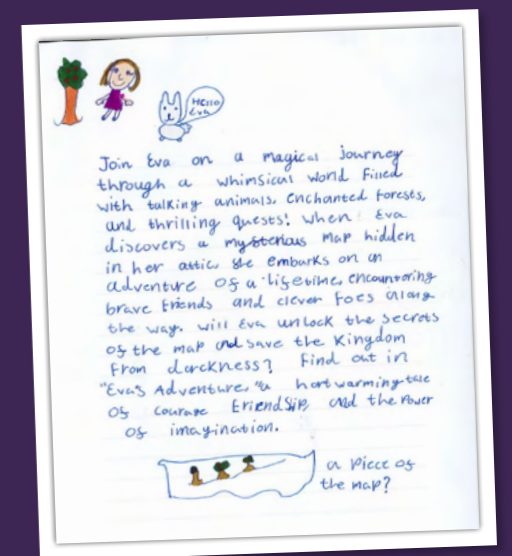 Hello
Eva
Join Eva on a magical journey
through a whimsical world filled
with talking animals, enchanted forests,
and thrilling quests! when Eva
discovers a mysterious map hidden
in her attic, she embarks on an
adventure of a lifetime, encountering
brave friends and clever foes along
the way. will Eva unlock the secrets
of the map and save the Kingdom
from darckness? Find out in
"Eva's Adventure," a hartwarming tale
of courage friendship, and the power
of imagination.
a piece of
the map?